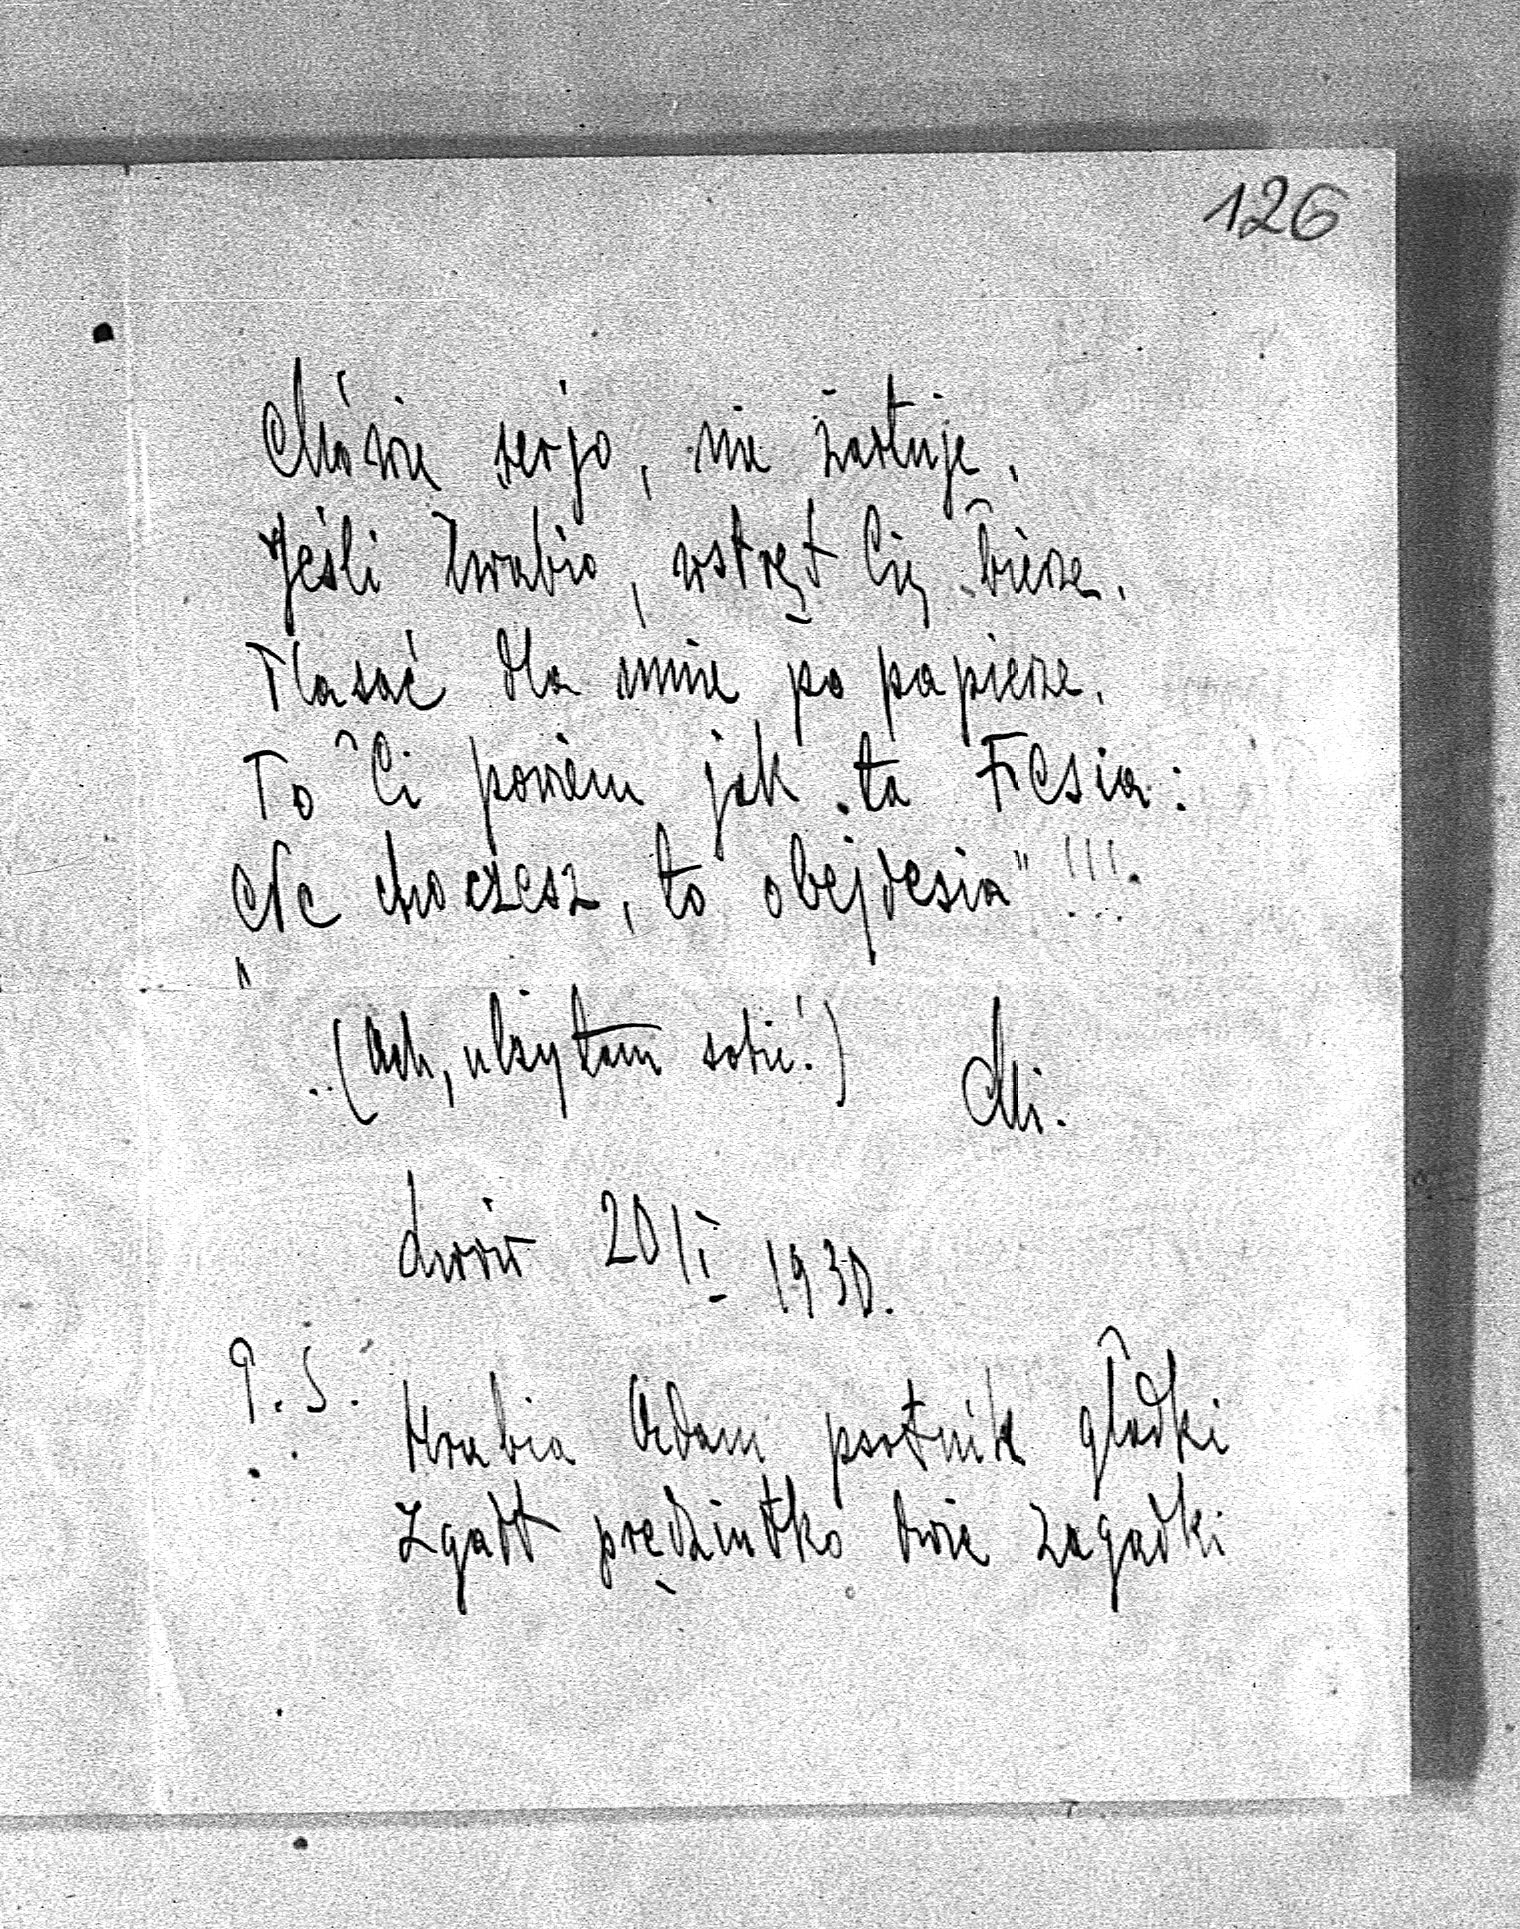 126
Mówie serjo, nie żartuje.
Jeśli Hrabio, wstręt Cię bierze.
Plasać dla mnie po papierze.
To Ci powiem jak ta Fesia:
„Ne choczesz, to obejdesia" !!!
(Ach, ulżyłam sobie!) Mi.
Lwów 20/I 1930.
P.S. Hrabia Adam psotnik gładki
Zgadł prędziutko twe zagadki